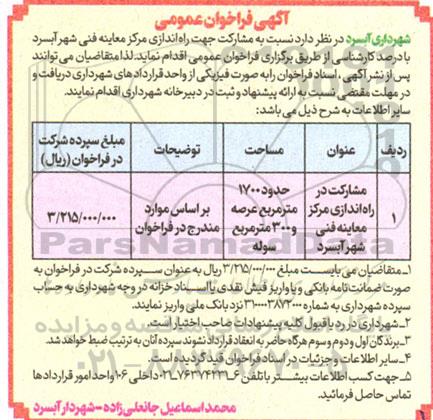 آگهی فراخوان عمومی
شهرداری آبسرد در نظر دارد نسبت به مشارکت جهت راه اندازی مرکز معاینه فنی شهر آبسرد
با درصد کارشناسی از طریق برگزاری فراخوان عمومی اقدام نماید. لذا متقاضیان می توانند
پس از نشر آگهی ، اسناد فراخوان را به صورت فیزیکی از واحد قراردادهای شهرداری دریافت و
در مهلت مقتضی نسبت به ارائه پیشنهاد و ثبت در دبیرخانه شهرداری اقدام نمایند.
سایر اطلاعات به شرح ذیل می باشد:
ردیف عنوان مساحت توضیحات مبلغ سپرده شرکت در فراخوان (ریال)
۱ مشارکت در راه اندازی مرکز معاینه فنی شهر آبسرد حدود ۱۷۰۰ مترمربع عرصه و ۳۰۰ مترمربع سوله بر اساس موارد مندرج در فراخوان ۳/۲۱۵/۰۰۰/۰۰۰
۱_ متقاضیان می بایست مبلغ ۳/۲۱۵/۰۰۰/۰۰۰ ریال به عنوان سپرده شرکت در فراخوان به
صورت ضمانت نامه بانکی و یا واریز فیش نقدی یا اسناد خزانه در وجه شهرداری به حساب
سپرده شهرداری به شماره ۳۱۰۰۰۳۸۷۲۰۰۰ نزد بانک ملی واریز نمایند.
۲_ شهرداری در رد یا قبول کلیه پیشنهادات صاحب اختیار است.
۳_ برندگان اول و دوم و سوم هرگاه حاضر به انعقاد قرارداد نشوند سپرده آنان به ترتیب ضبط خواهد شد.
۴_ سایر اطلاعات و جزئیات در اسناد فراخوان قید گردیده است.
۵_ جهت کسب اطلاعات بیشتر با تلفن ۶_۷۶۳۷۴۲۳۱_۰۲۱ داخلی ۱۰۶ واحد امور قراردادها
تماس حاصل فرمائید.
محمد اسماعیل جانعلی زاده – شهردار آبسرد
ParsNamadData